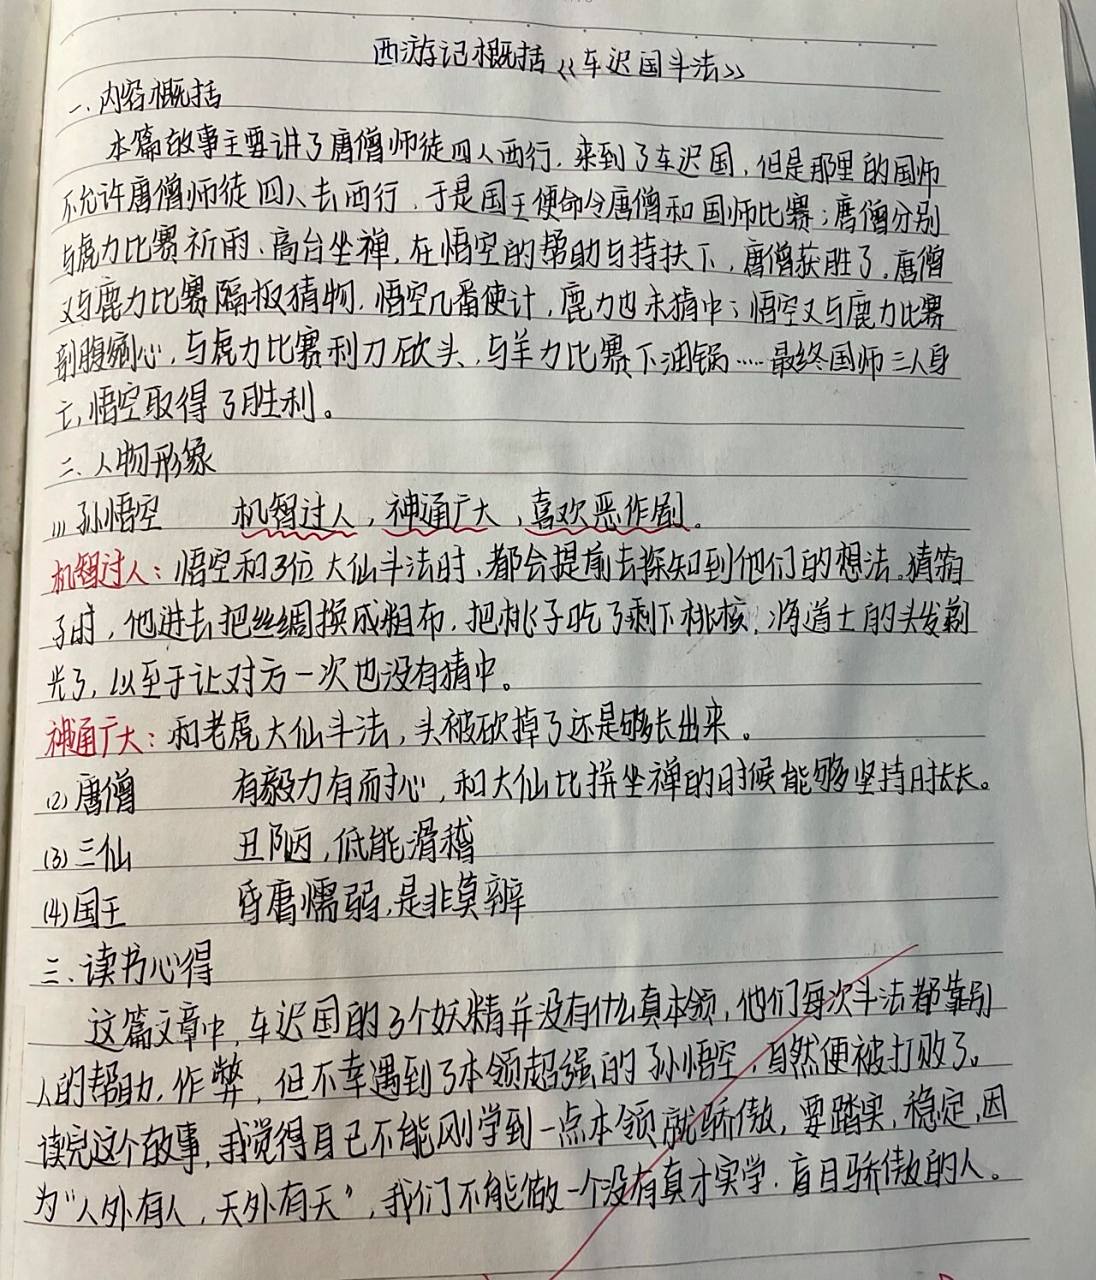 西游记概括《车迟国斗法》
一、内容概括
本篇故事主要讲了唐僧师徒四人西行，来到了车迟国，但是那里的国师
不允许唐僧师徒四人去西行，于是国王便命令唐僧和国师比赛；唐僧分别
与虎力比赛祈雨、高台坐禅，在悟空的帮助与持扶下，唐僧获胜了，唐僧
又与鹿力比赛隔板猜物，悟空几番使计，鹿力也未猜中；悟空又与鹿力比赛
剖腹剜心，与虎力比赛利刀砍头，与羊力比赛下油锅……最终国师三人身
亡，悟空取得了胜利。
二、人物形象
(1)孙悟空 机智过人，神通广大，喜欢恶作剧。
机智过人：悟空和3位大仙斗法时，都会提前去探知到他们的想法。猜箱
子时，他进去把丝绸换成粗布，把桃子吃了剩下桃核，将道士的头发剃
光了，以至于让对方一次也没有猜中。
神通广大：和老虎大仙斗法，头被砍掉了还是够长出来。
(2)唐僧 有毅力有耐心，和大仙比拼坐禅的时候能够坚持时长长。
(3)三仙 丑陋，低能滑稽
(4)国王 昏庸懦弱，是非莫辨
三、读书心得
这篇文章中，车迟国的3个妖精并没有什么真本领，他们每次斗法都靠别
人的帮助，作弊，但不幸遇到了本领超强的孙悟空，自然便被打败了。
读完这个故事，我觉得自己不能刚学到一点本领就骄傲，要踏实，稳定，因
为“人外有人，天外有天”，我们不能做一个没有真才实学，盲目骄傲的人。